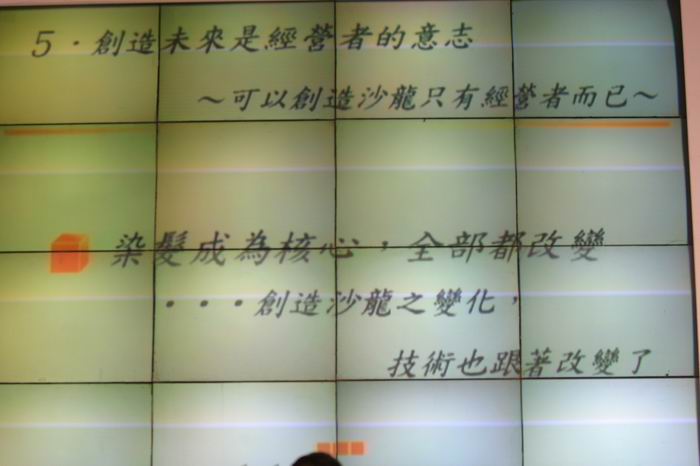 5·創造未來是經營者的意志
～可以創造沙龍只有經營者而已～
染髮成為核心，全部都改變
···創造沙龍之變化，
技術也跟著改變了